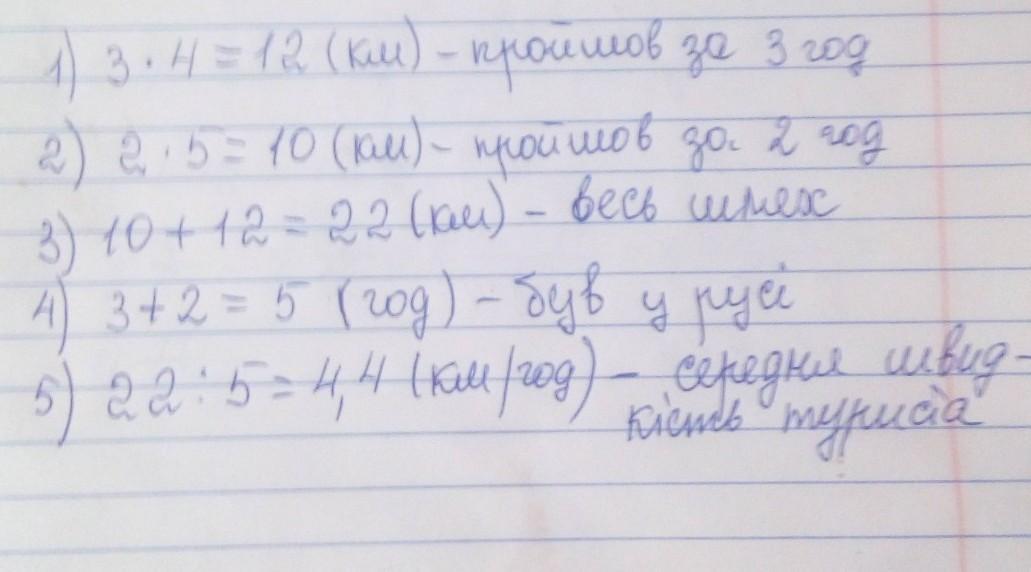 1) 3 · 4 = 12 (км) - пройшов за 3 год
2) 2 · 5 = 10 (км) - пройшов за 2 год
3) 10 + 12 = 22 (км) - весь шлях
4) 3 + 2 = 5 (год) - був у русі
5) 22 : 5 = 4,4 (км/год) - середня швид-
кість туриста